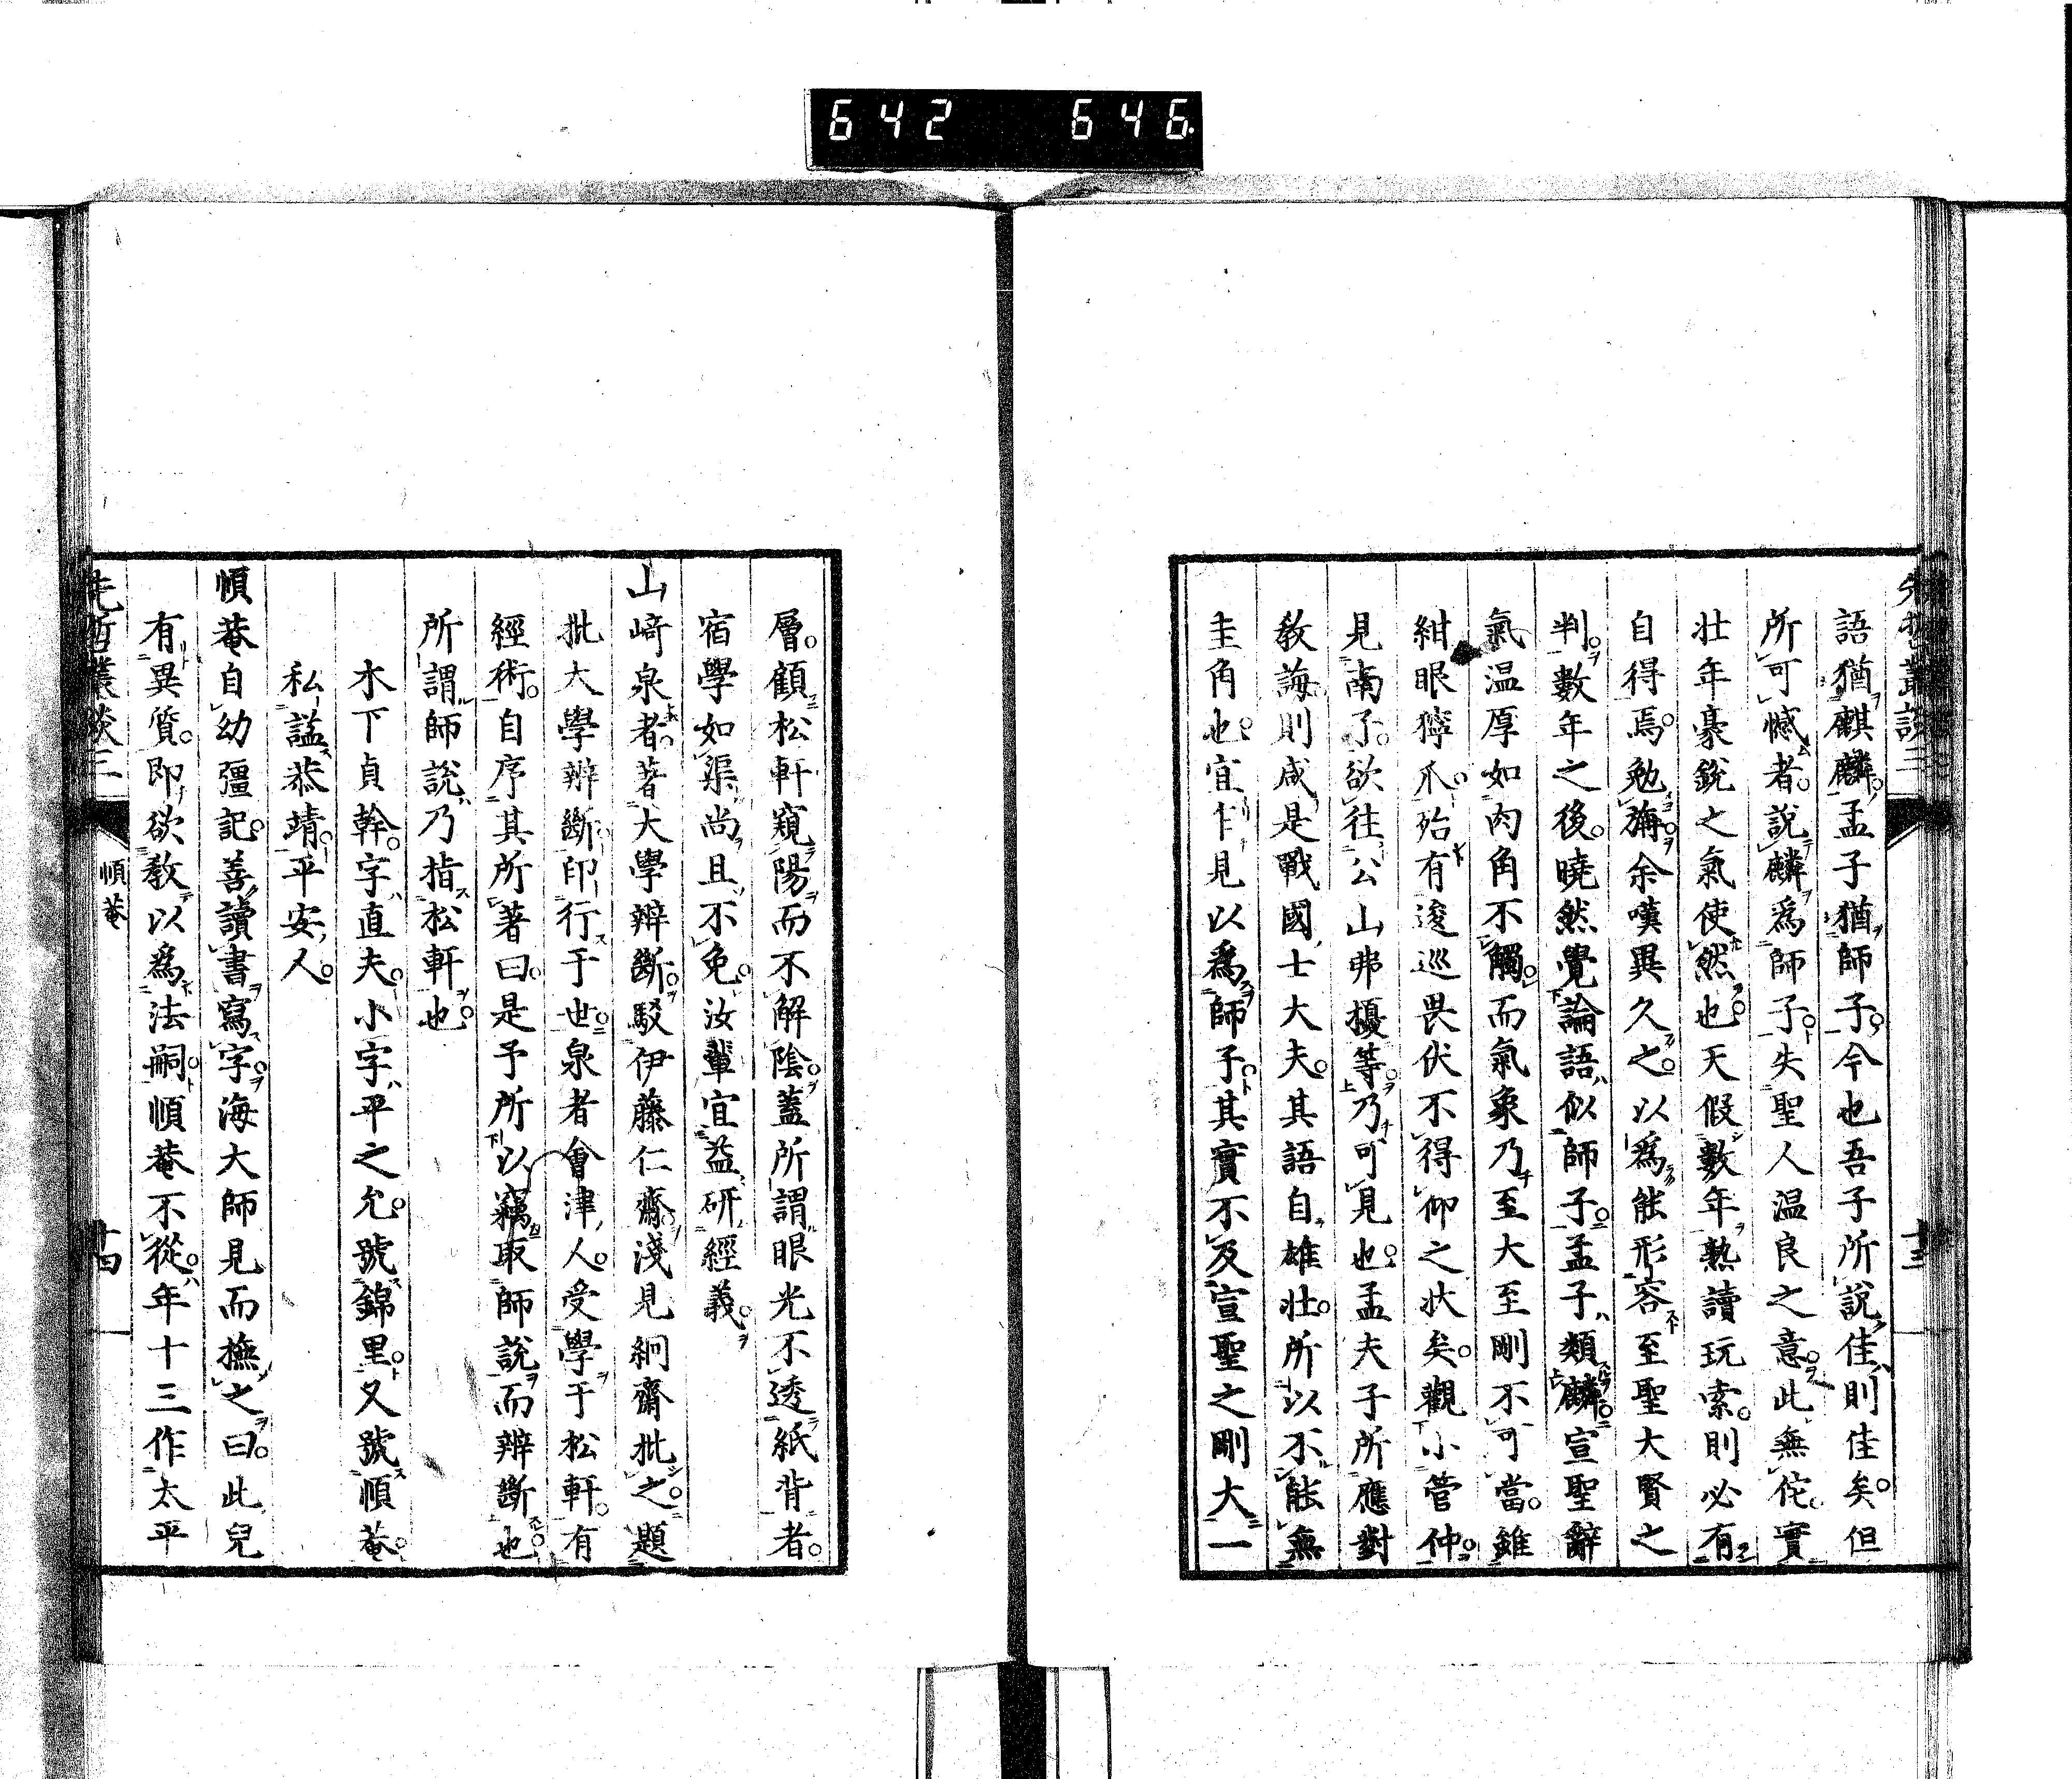 642 646
先哲叢談三
十三
語猶麒麟孟子猶師子今也吾子所說佳則佳矣但
所可憾者說麟爲師子失聖人温良之意此無佗實
壯年豪銳之氣使然也天假數年熟讀玩索則必有
自得焉勉旃余嘆異久之以爲能形容至聖大賢之
判數年之後曉然覺論語似師子孟子類麟宣聖辭
氣温厚如肉角不觸而氣象乃至大至剛不可當雖
紺眼獰爪殆有逡巡畏伏不得仰之狀矣觀小管仲
見南子欲往公山弗擾等乃可見也孟夫子所應對
敎誨則咸是戰國士大夫其語自雄壯所以不能無
圭角也宜乍見以爲師子其實不及宣聖之剛大一
層顧松軒窺陽而不解陰蓋所謂眼光不透紙背者
宿學如渠尚且不免汝輩宜益研經義
山﨑泉者著大學辨斷駁伊藤仁齋淺見絅齋批之題
批大學辨斷印行于世泉者會津人受學于松軒有
經術自序其所著曰是予所以竊取師說而辨斷也
所謂師說乃指松軒也
木下貞幹字直夫小字平之允號錦里又號順菴
私諡恭靖平安人
順菴自幼彊記善讀書寫字海大師見而撫之曰此兒
有異質即欲敎以爲法嗣順菴不從年十三作太平
先哲叢談三
順菴
十四